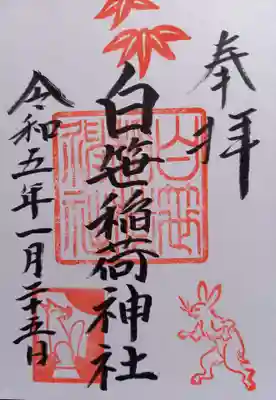 奉拝
白笹稲荷神社
令和五年一月二十五日